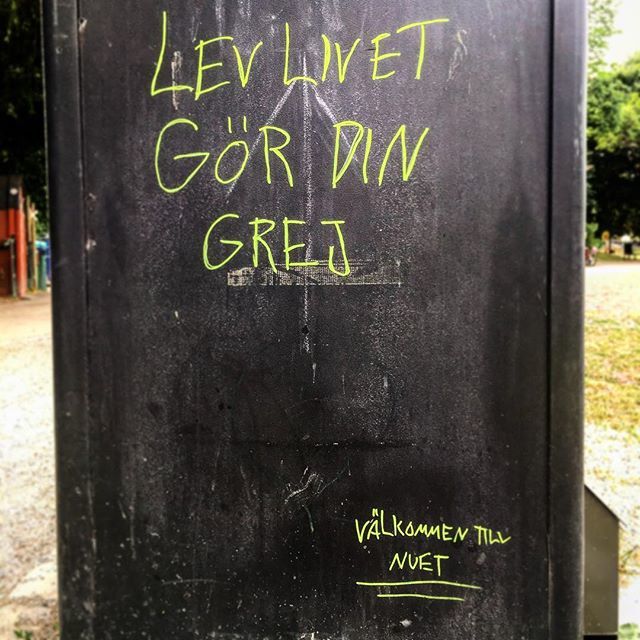 LEV LIVET
GÖR DIN
GREJ
VÄLKOMMEN TILL
NUET